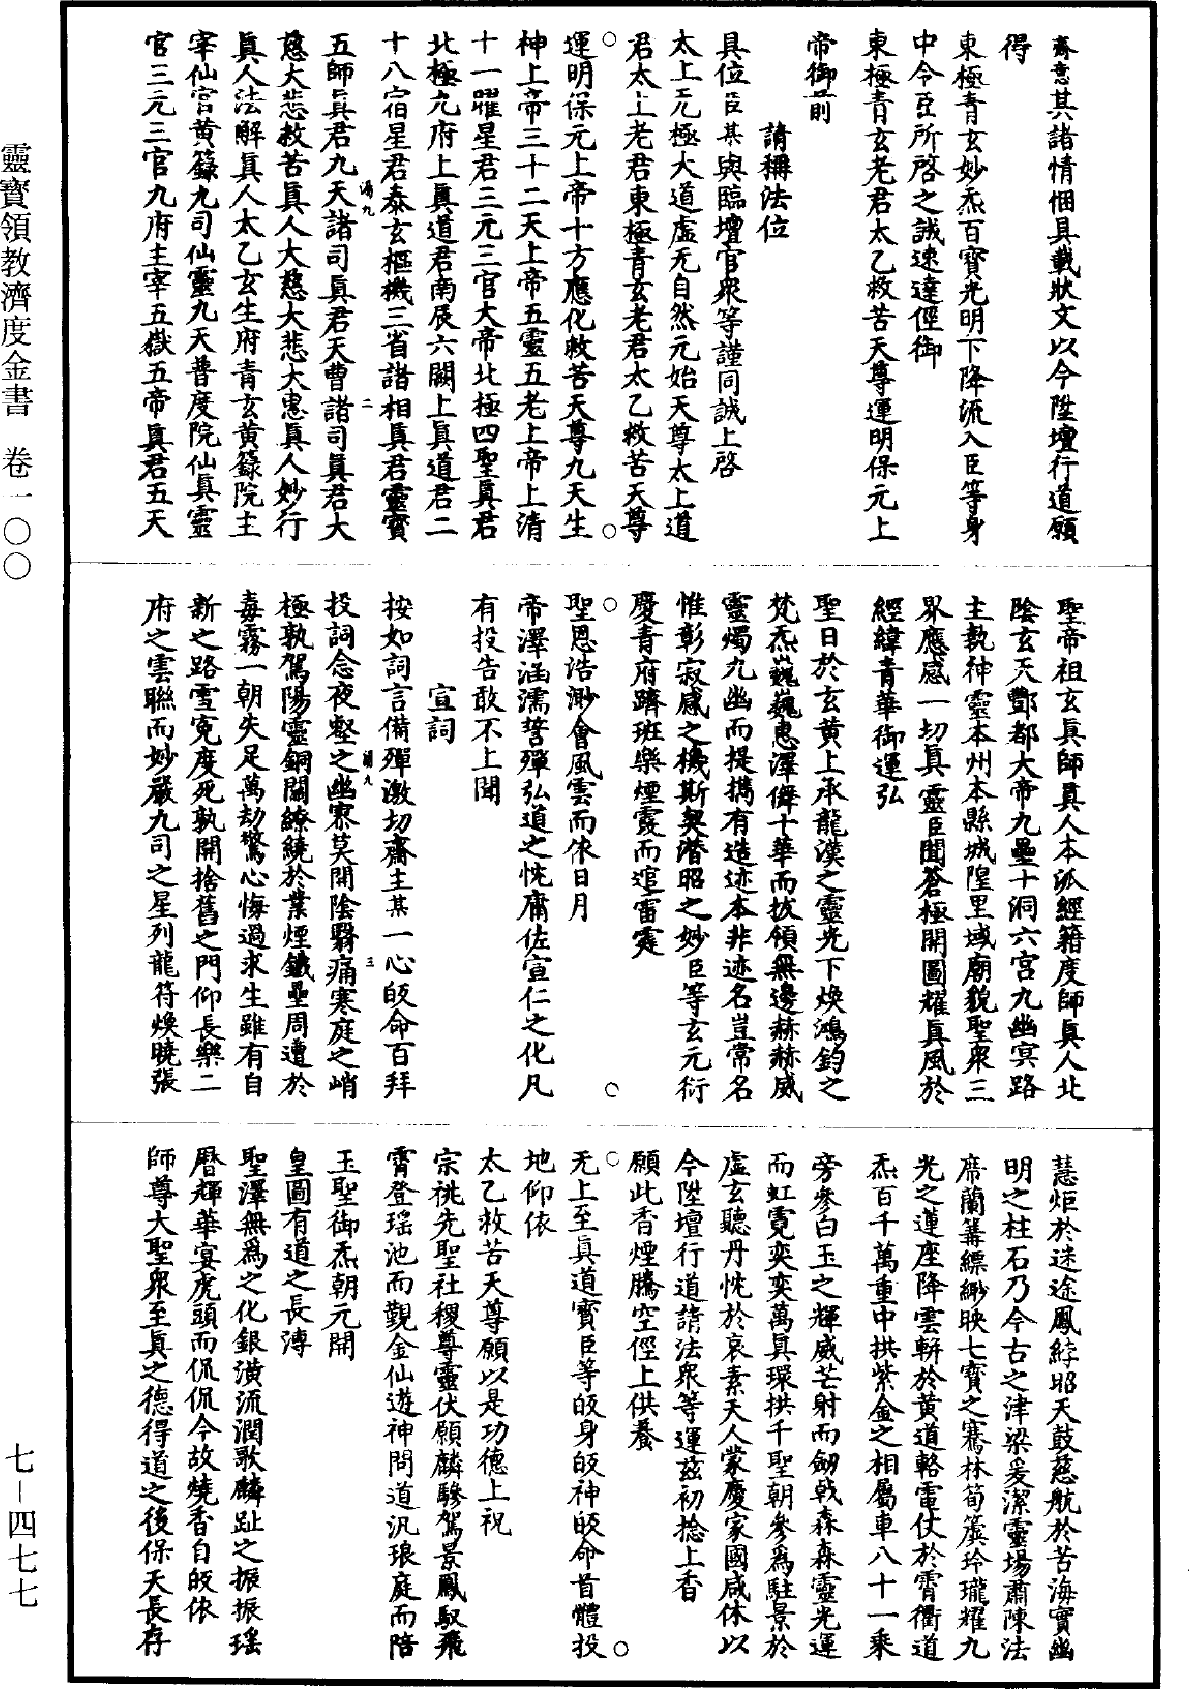 齋意某諸情悃具載狀文以今陞壇行道願
得
東極青玄妙炁百寶光明下降流入臣等身
中令臣所啓之誠速達徑御
東極青玄老君太乙救苦天尊運明保元上
帝御前
請稱法位
具位臣某與臨壇官衆等謹同誠上啓
太上无極大道虛无自然元始天尊太上道
君太上老君東極青玄老君太乙救苦天尊
運明保元上帝十方應化救苦天尊九天生
神上帝三十二天上帝五靈五老上帝上清
十一曜星君三元三官大帝北極四聖真君
北極九府上真道君南辰六闕上真道君二
十八宿星君泰玄樞機三省諸相真君靈寶
五師真君九天諸司真君天曹諸司真君大
慈大悲救苦真人大慈大悲大惠真人妙行
真人法解真人太乙玄生府青玄黃籙院主
宰仙官黃籙九司仙靈九天普度院仙真靈
官三元三官九府主宰五嶽五帝真君五天
聖帝祖玄真師真人本派經籍度師真人北
陰玄天酆都大帝九壘十洞六宮九幽冥路
主執神靈本州本縣城隍里域廟貌聖衆三
界應感一切真靈臣聞蒼極開圖耀真風於
經緯青華御運弘
聖日於玄黃上承龍漢之靈光下煥鴻鈞之
梵炁巍巍惠澤儕十華而拔領無邊赫赫威
靈燭九幽而提攜有造迹本非迹名豈常名
惟彰寂感之機斯契潛昭之妙臣等玄元衍
慶青府躋班樂煙霞而逭雷霆
聖恩浩渺會風雲而依日月
帝澤涵濡誓殫弘道之忱庸佐宣仁之化凡
有投告敢不上聞
宣詞
按如詞言備殫激切齋主某一心皈命百拜
投詞念夜壑之幽寥莫開陰翳痛寒庭之峭
極孰駕陽靈銅闕繚繞於業煙鐵壘周遭於
毒霧一朝失足萬劫驚心悔過求生雖有自
新之路雪冤度死孰開捨舊之門仰長樂二
府之雲聯而妙嚴九司之星列龍符煥曉張
慧炬於迷途鳳綍昭天鼓慈航於苦海實幽
明之柱石乃今古之津梁爰潔靈場肅陳法
席蘭篝縹緲映七寶之騫林筍簴玲瓏耀九
光之蓮座降雲輧於黃道輅電仗於霄衢道
炁百千萬重中拱紫金之相屬車八十一乘
旁參白玉之輝威芒射而劒戟森森靈光運
而虹霓奕奕萬真環拱千聖朝參爲駐景於
虛玄聽丹忱於哀素天人蒙慶家國咸休以
今陞壇行道請法衆等運茲初捻上香
願此香煙騰空徑上供養
无上至真道寶臣等皈身皈神皈命首體投
地仰依
太乙救苦天尊願以是功德上祝
宗祧先聖社稷尊靈伏願麟驂駕景鳳馭飛
霄登瑶池而覲金仙遊神問道汎琅庭而陪
玉聖御炁朝元開
皇圖有道之長溥
聖澤無爲之化銀潢流潤歌麟趾之振振瑶
曆輝華宴虎頭而侃侃今故燒香自皈依
師尊大聖衆至真之德得道之後保天長存
靈寶領教濟度金書　卷一〇〇
七—四七七